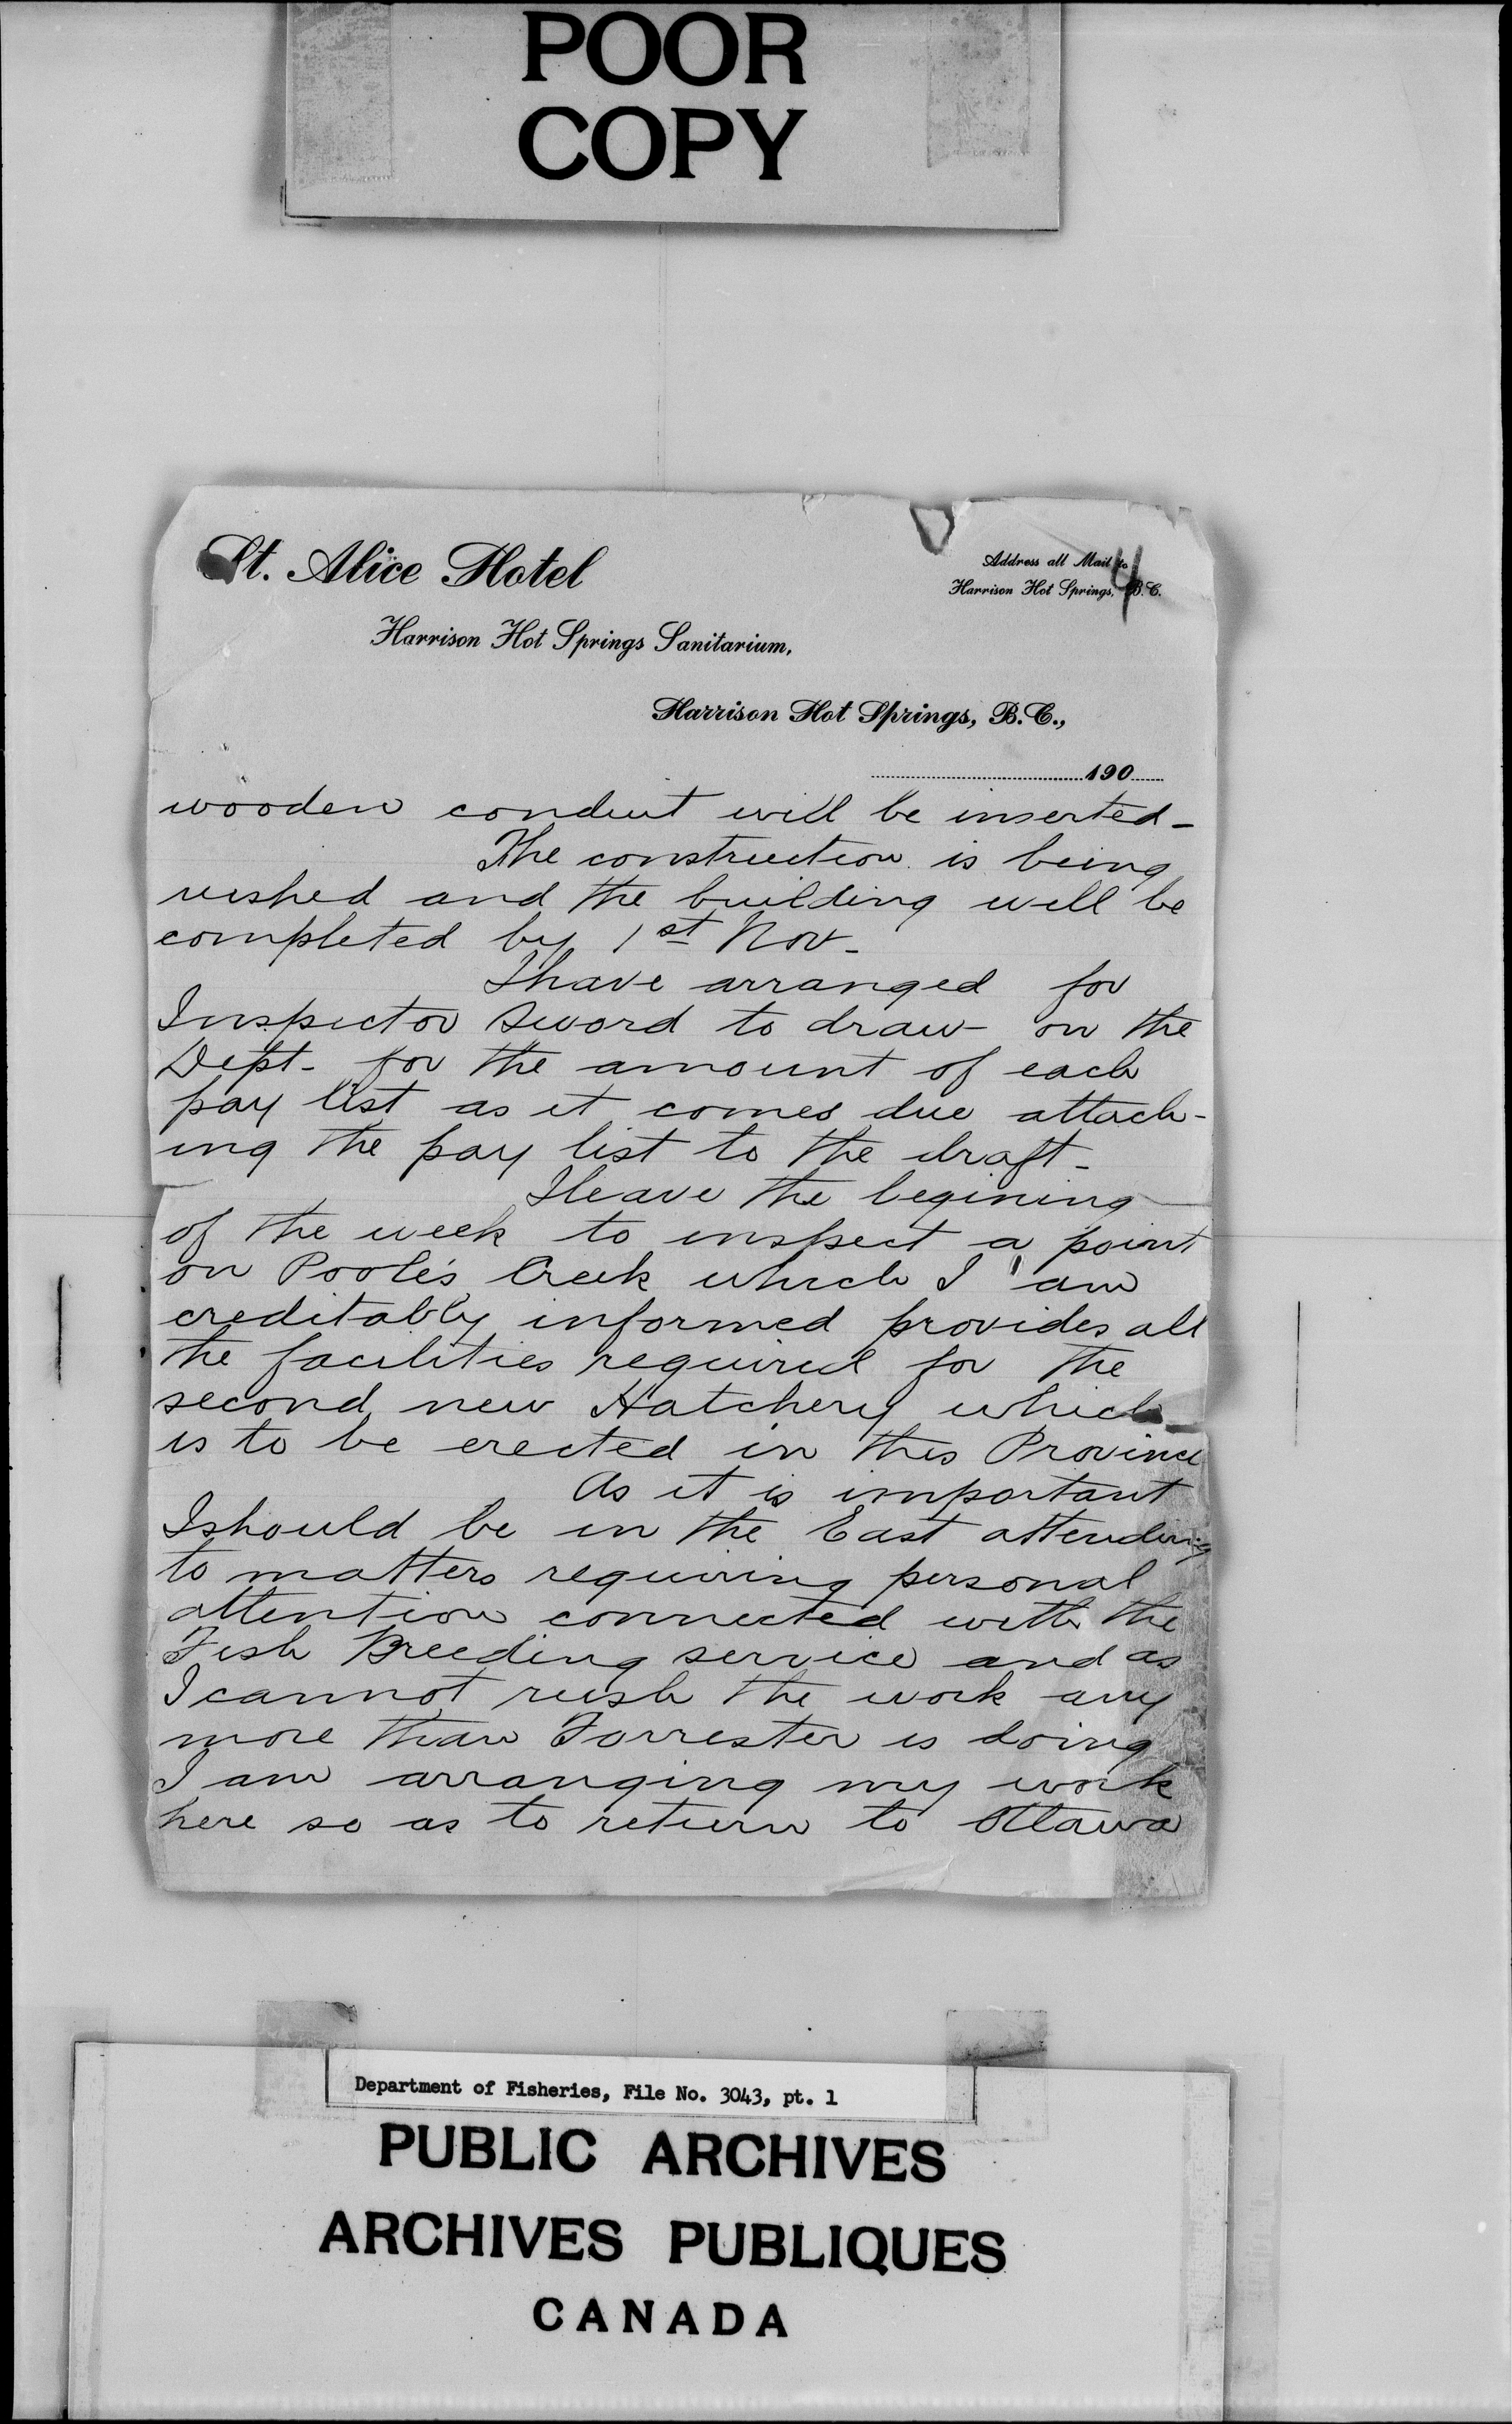 POOR
COPY
St. Alice Hotel
Address all Mail to
Harrison Hot Springs, B.C.
4
Harrison Hot Springs Sanitarium,
Harrison Hot Springs, B.C.,
190
wooden conduit will be inserted-
The construction is being
rushed and the building will be
completed by 1st Nov-
I have arranged for
Inspector Sword to draw on the
Dept- for the amount of each
pay list as it comes due attach-
ing the pay list to the draft-
I leave the begining
of the week to inspect a point
on Poole's Creek which I am
creditably informed provides all
the facilities required for the
second new Hatchery which
is to be erected in this Province
As it is important
I should be in the East attending
to matters requiring personal
attention connected with the
Fish Breeding service and as
I cannot rush the work any
more than Forrester is doing
I am arranging my work
here so as to return to Ottawa
Department of Fisheries, File No. 3043, pt. 1
PUBLIC ARCHIVES
ARCHIVES PUBLIQUES
CANADA